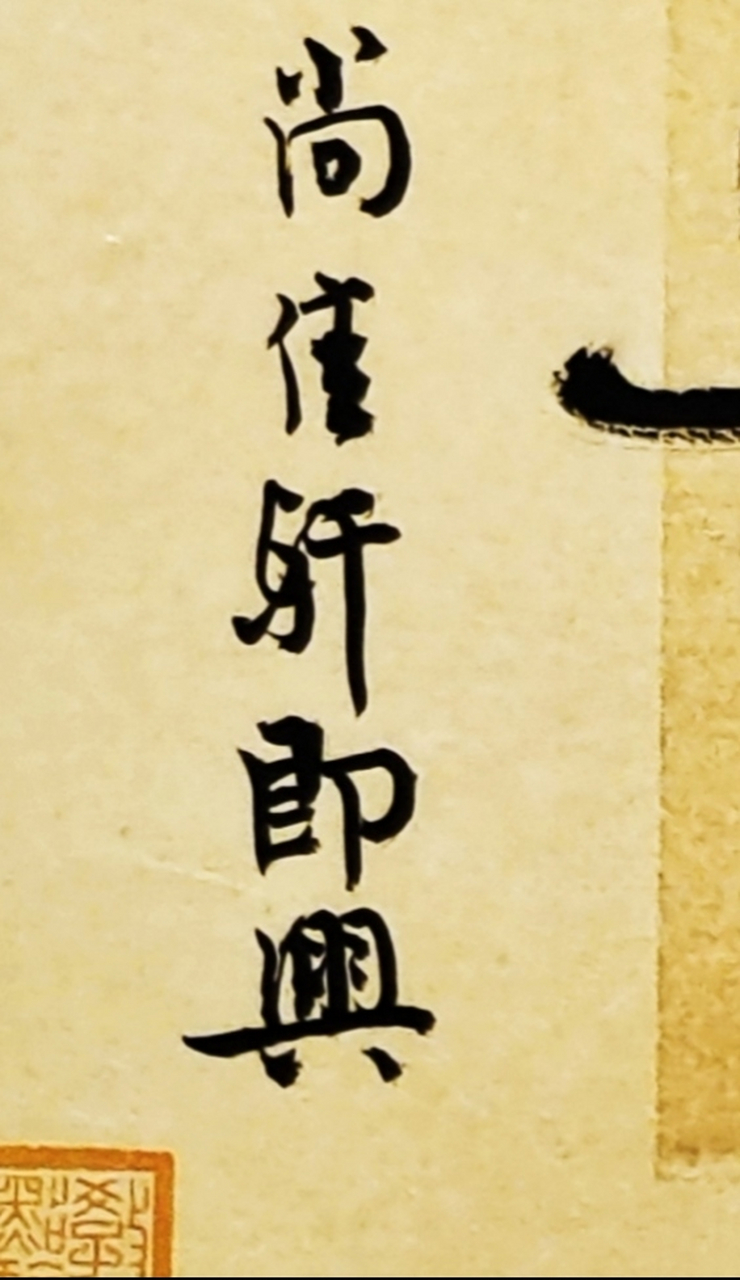 尚佳軒即興